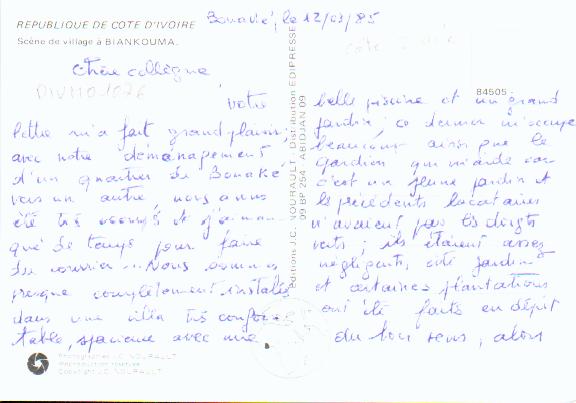 REPUBLIQUE DE COTE D'IVOIRE
Scène de village à BIANKOUMA.
Bouaké, le 12/03/85
Chère collègue
DIVMO-1026
84505
Editions J.C. NOURAULT - Distribution EDIPRESSE
09 BP 254 - ABIDJAN 09
Votre
lettre m'a fait grand plaisir;
avec notre déménagement
d'un quartier de Bouaké
vers un autre, nous avons
été très occupés et j'ai man-
qué de temps pour faire
du courrier... Nous sommes
presque complètement installés
dans une villa très confor-
table, spacieuse avec une
belle piscine et un grand
jardin; ce dernier m'occupe
beaucoup ainsi que le
gardien qui m'aide car
c'est un jeune jardin et
les précédents locataires
n'avaient pas les doigts
verts; ils étaient assez
négligents, côté jardin
et certaines plantations
ont été faites en dépit
du bon sens, alors
Photographies J.C. NOURAULT
Reproduction interdite
Copyright J.C. NOURAULT